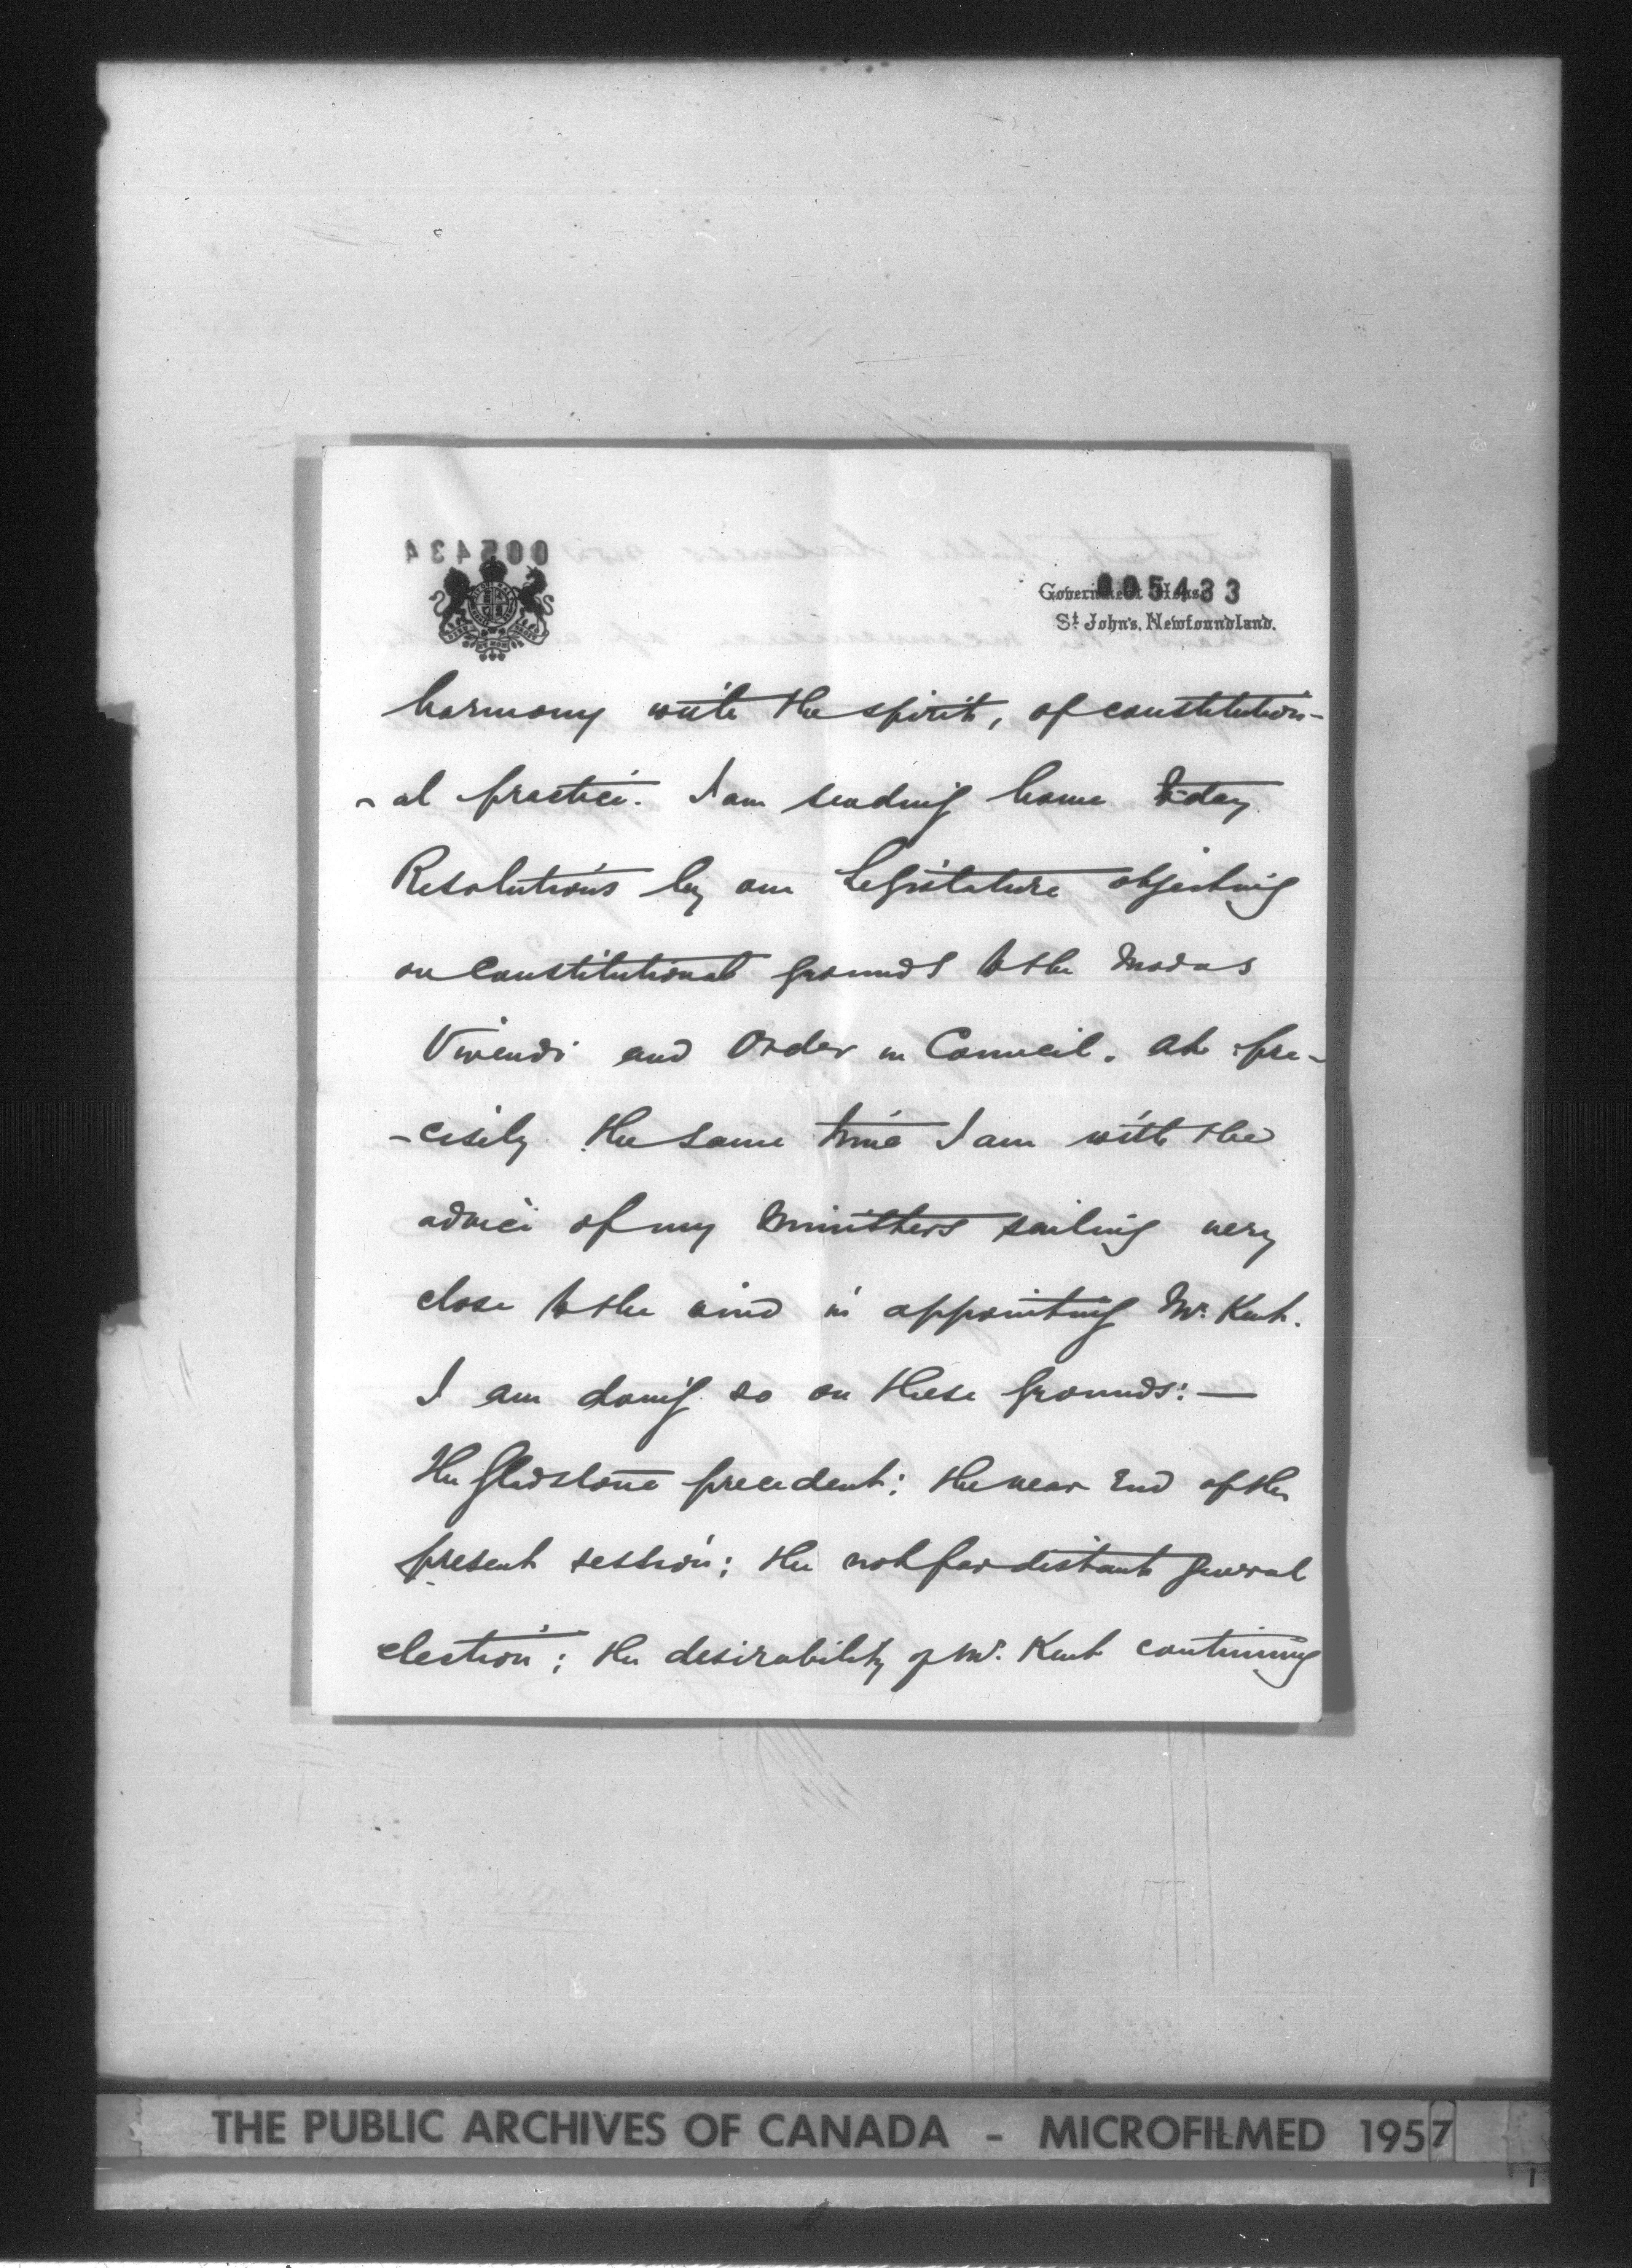 005434
005433
Government House
St. John's, Newfoundland.
harmony with the spirit, of constitution-
-al practice. I am sending home to-day
Resolutions by our Legislature objecting
on Constitutional grounds to the Modus
Vivendi and Order in Council. At pre-
-cisely the same time I am with the
advice of my Ministers sailing very
close to the wind in appointing Mr. Kent.
I am doing so on these grounds:—
The Gladstone precedent; the near end of the
present session; the not far distant general
election; the desirability of Mr. Kent continuing
THE PUBLIC ARCHIVES OF CANADA - MICROFILMED 1957